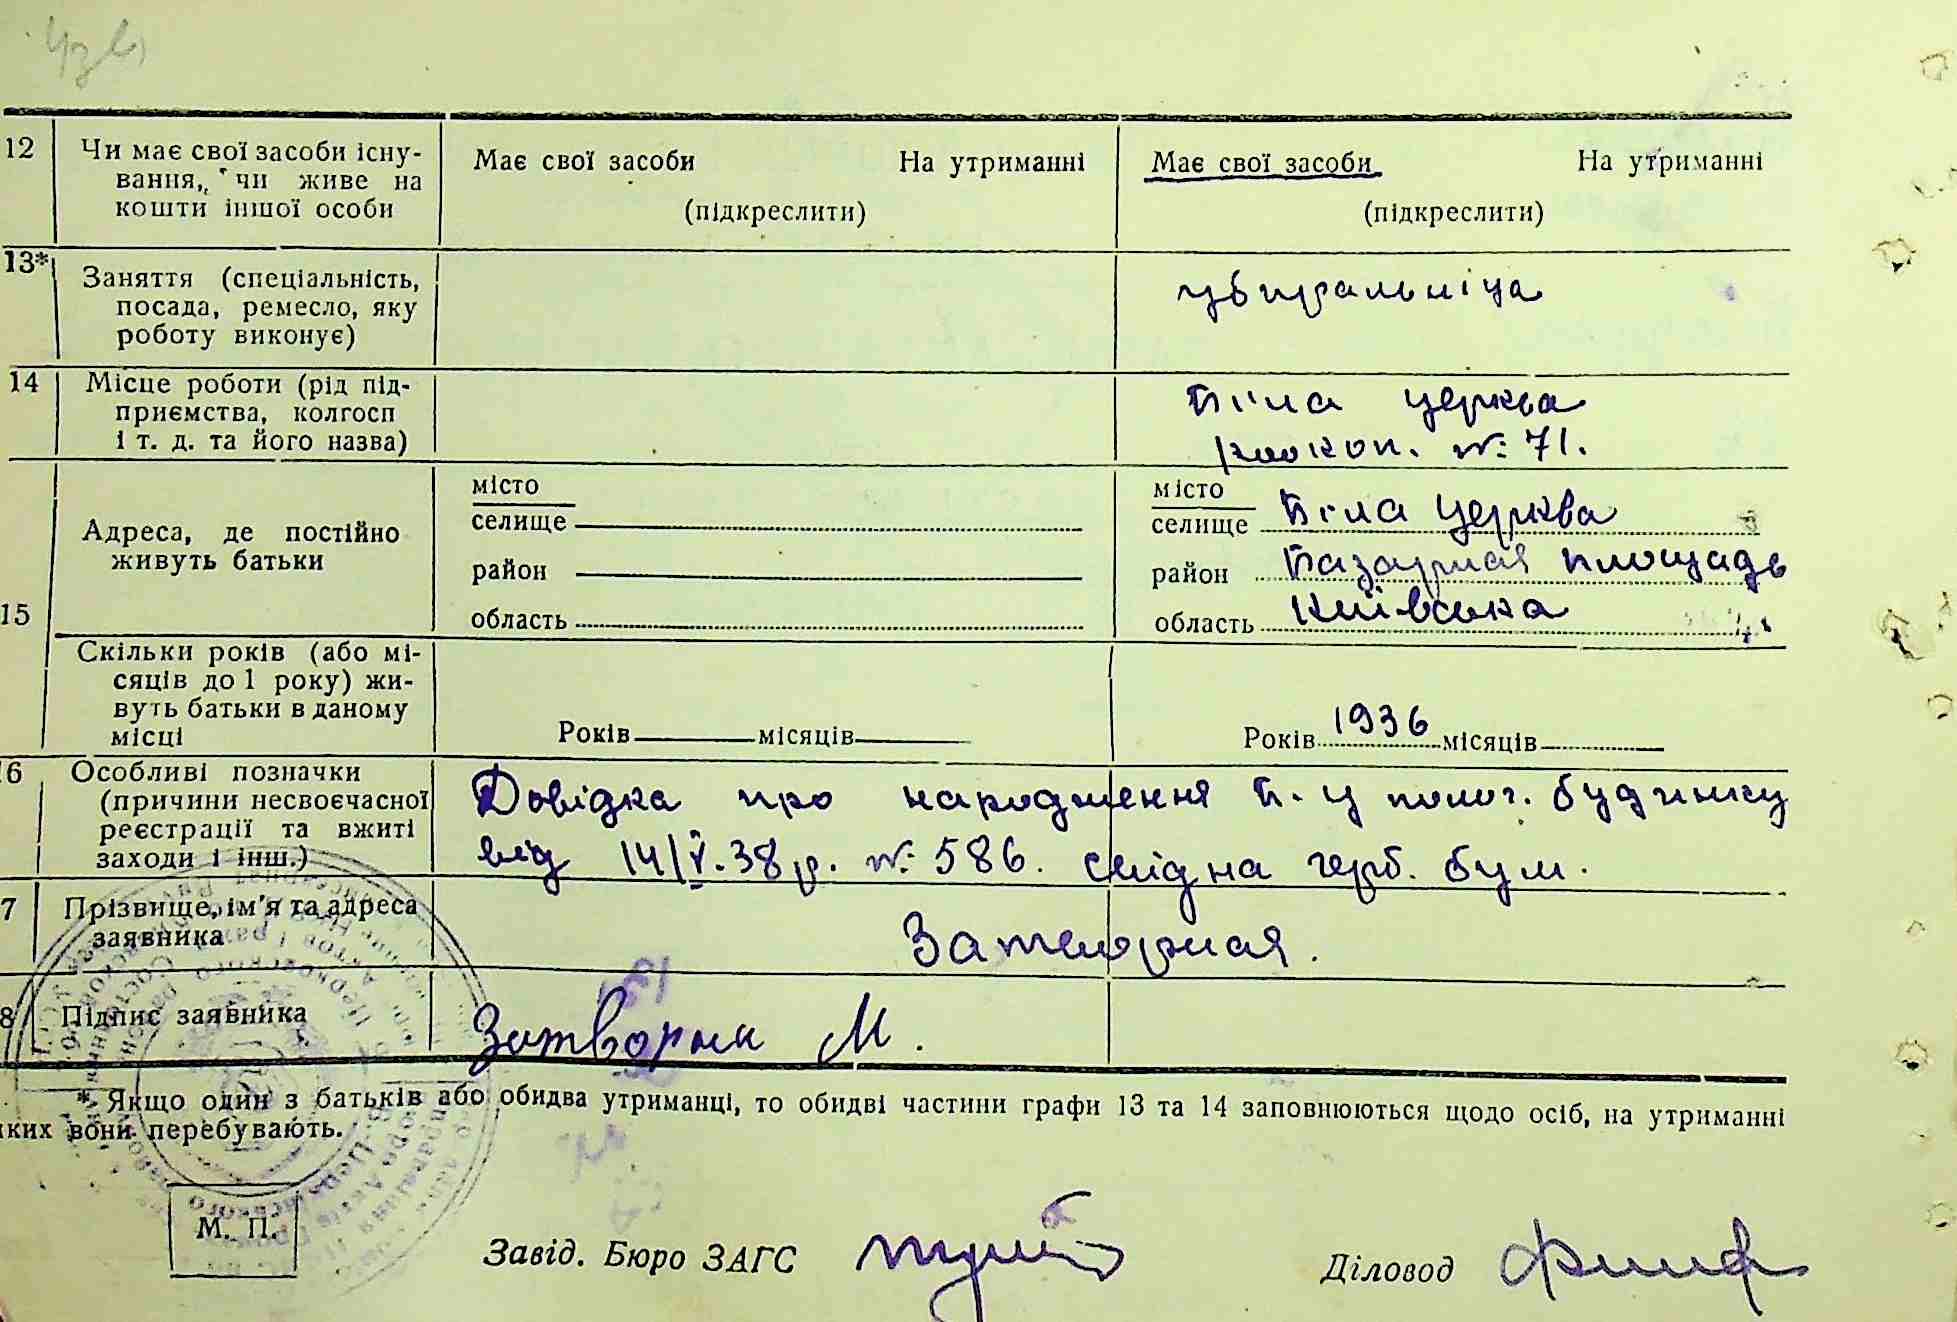 12 Чи має свої засоби існу-
вання, чи живе на
кошти іншої особи
Має свої засоби На утриманні
(підкреслити)
Має свої засоби На утриманні
(підкреслити)
13* Заняття (спеціальність,
посада, ремесло, яку
роботу виконує)
убиральніца
14 Місце роботи (рід під-
приємства, колгосп
і т. д. та його назва)
Біла церква
№ 71.
15
Адреса, де постійно
живуть батьки
місто
селище
район
область
місто
селище Біла церква
район Базарная площадь
область Київська
Скільки років (або мі-
сяців до 1 року) жи-
вуть батьки в даному
місці
Років місяців
Років 1936 місяців
16 Особливі позначки
(причини несвоєчасної
реєстрації та вжиті
заходи і інш.)
Довідка про народження Б. Ц полог. будинку
від 14/V.38 р. № 586. герб. бум.
7 Прізвище, ім'я та адреса
заявника
Затворная.
8 Підпис заявника
Затворна М.
* Якщо один з батьків або обидва утриманці, то обидві частини графи 13 та 14 заповнюються щодо осіб, на утриманні
яких вони перебувають.
М. П.
Завід. Бюро ЗАГС
Діловод